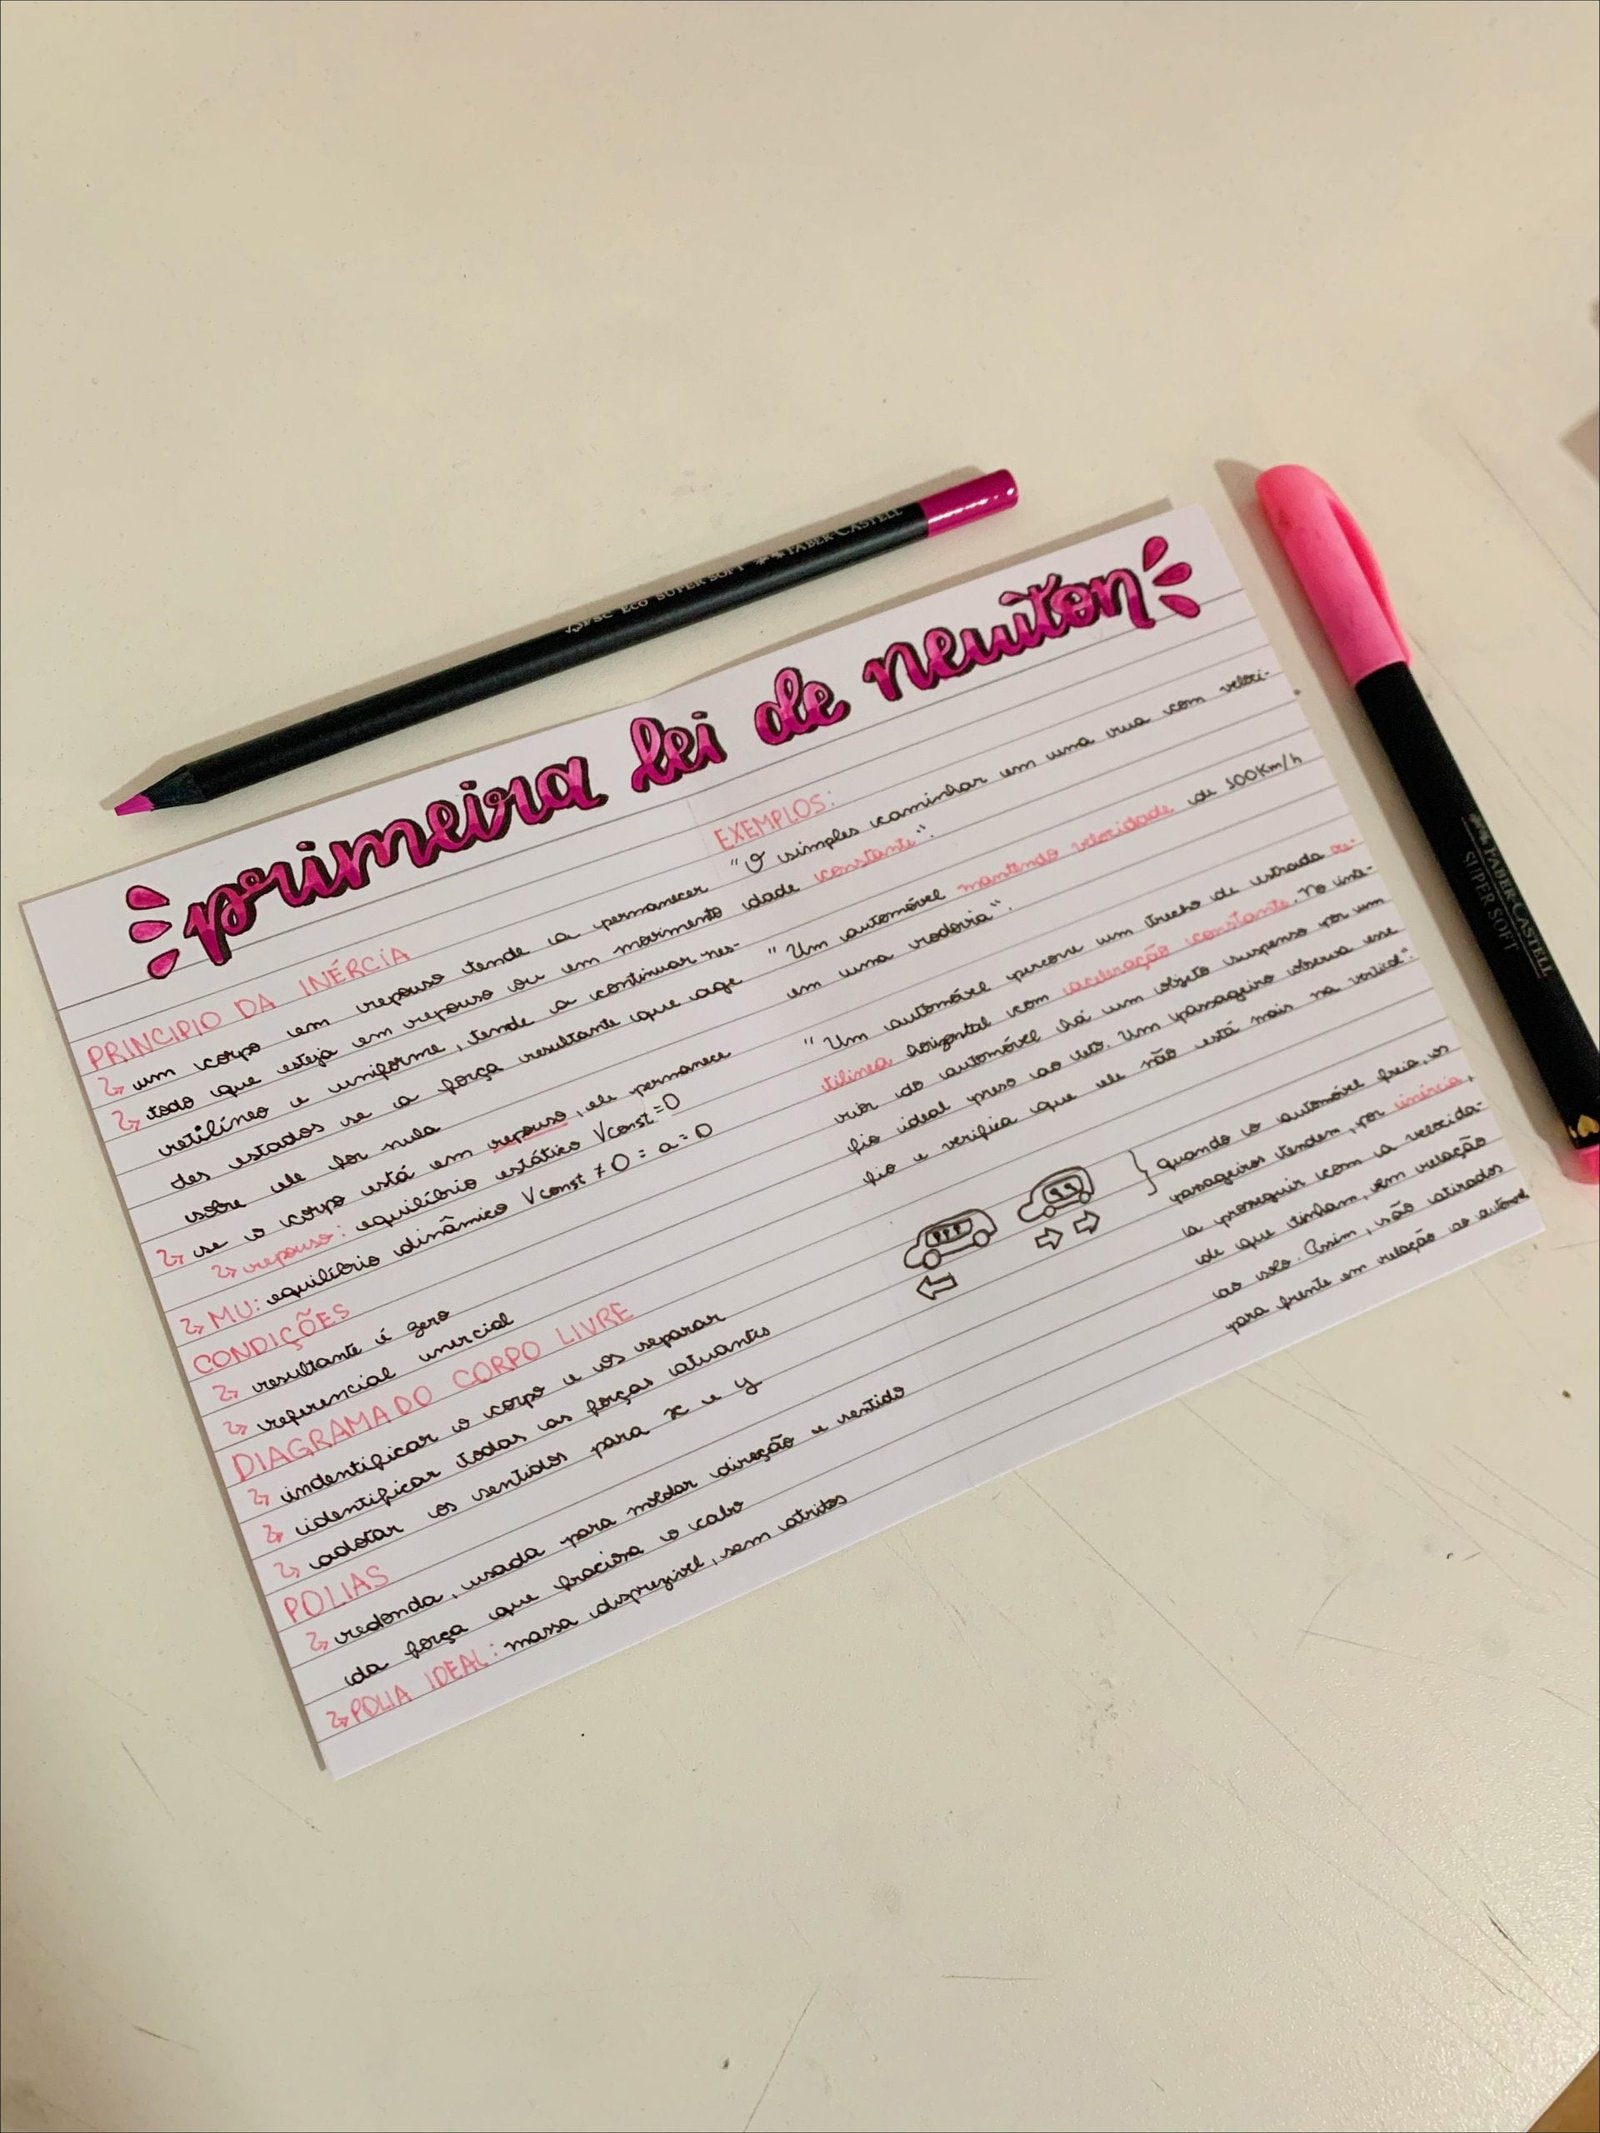 primeira lei de newton
PRINCIPIO DA INÉRCIA
um corpo em repouso tende a permanecer
todo que esteja em repouso ou em movimento
retilíneo e uniforme, tende a continuar nes-
des estados se a força resultante que age
sobre ele for nula
se o corpo está em repouso, ele permanece
repouso: equilíbrio estático Vconst=0
MU: equilíbrio dinâmico Vconst ≠ 0 = a = 0
CONDIÇÕES
resultante é zero
referencial inercial
DIAGRAMA DO CORPO LIVRE
indentificar o corpo e os separar
identificar todas as forças atuantis
adotar os sentidos para x e y
POLIAS
redonda, usada para moldar direção e sentido
da força que traciona o cabo
POLIA IDEAL: massa disprezivel, sem atritos
EXEMPLOS:
"O simples caminhar em uma rua com veloci-
dade constante".
"Um automóvel mantendo velocidade de 100Km/h
em uma rodovia".
"Um automóvel percore um trecho de estrada re-
tilinea horizontal com aceleração constante. No inte-
rior do automóvel há um objeto suspenso por um
fio ideal preso ao teto. Um passageiro observa esse
fio e verifica que ele não está mais na vertical".
Quando o automóvel freia, os
passageiros tendem, por inércia,
a proseguir com a velocida-
de que tinham, em relação
ao solo. Assim, são atirados
para frente em relação ao automóvel
ECO SUPER SOFT FABER-CASTELL
FABER-CASTELL
SUPER SOFT